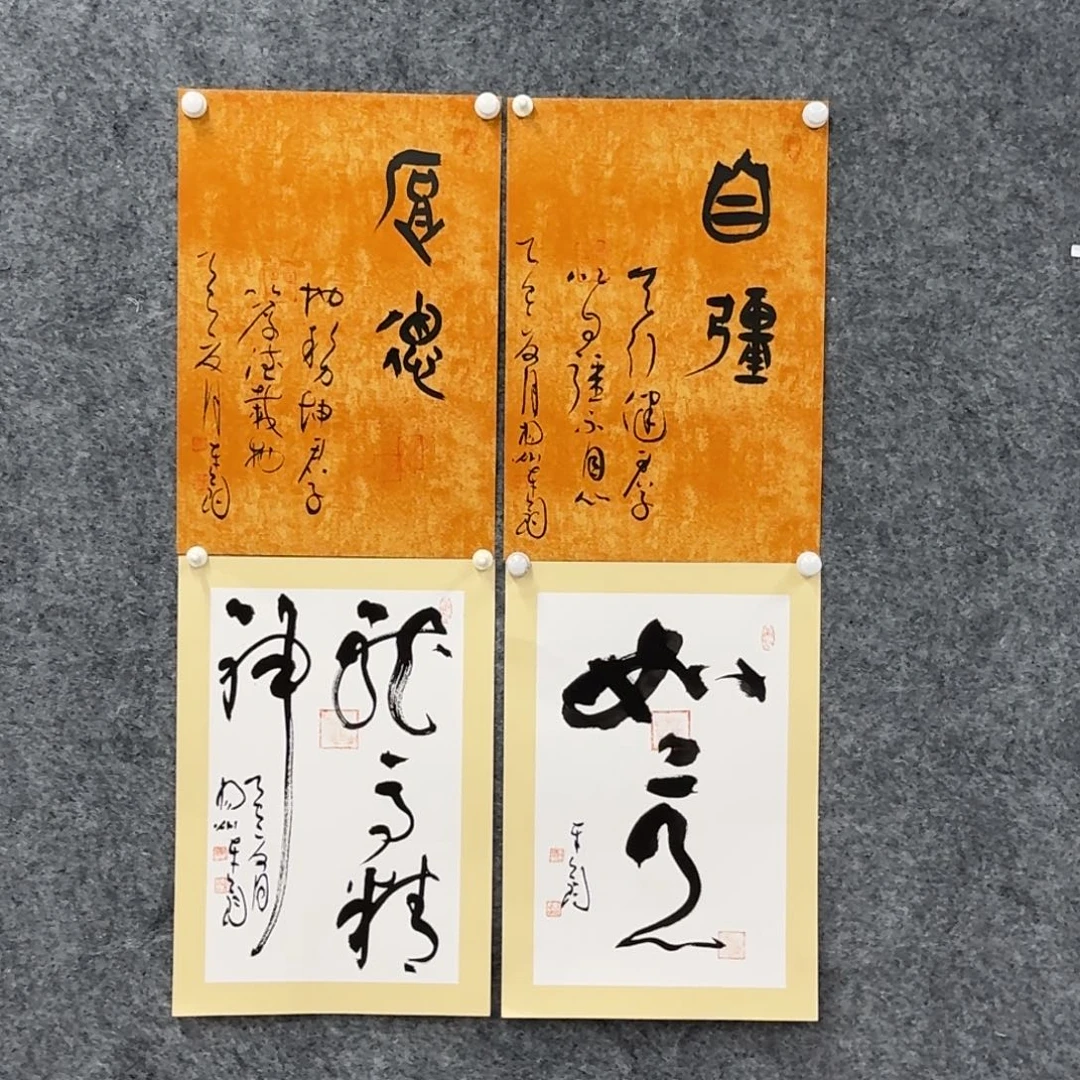 自彊
天行健君子
以自彊不息
乙巳夏月揚州
厚德
地勢坤君子
以厚德載物
乙巳夏月
如意
龍馬精
神
乙巳夏月
揚州